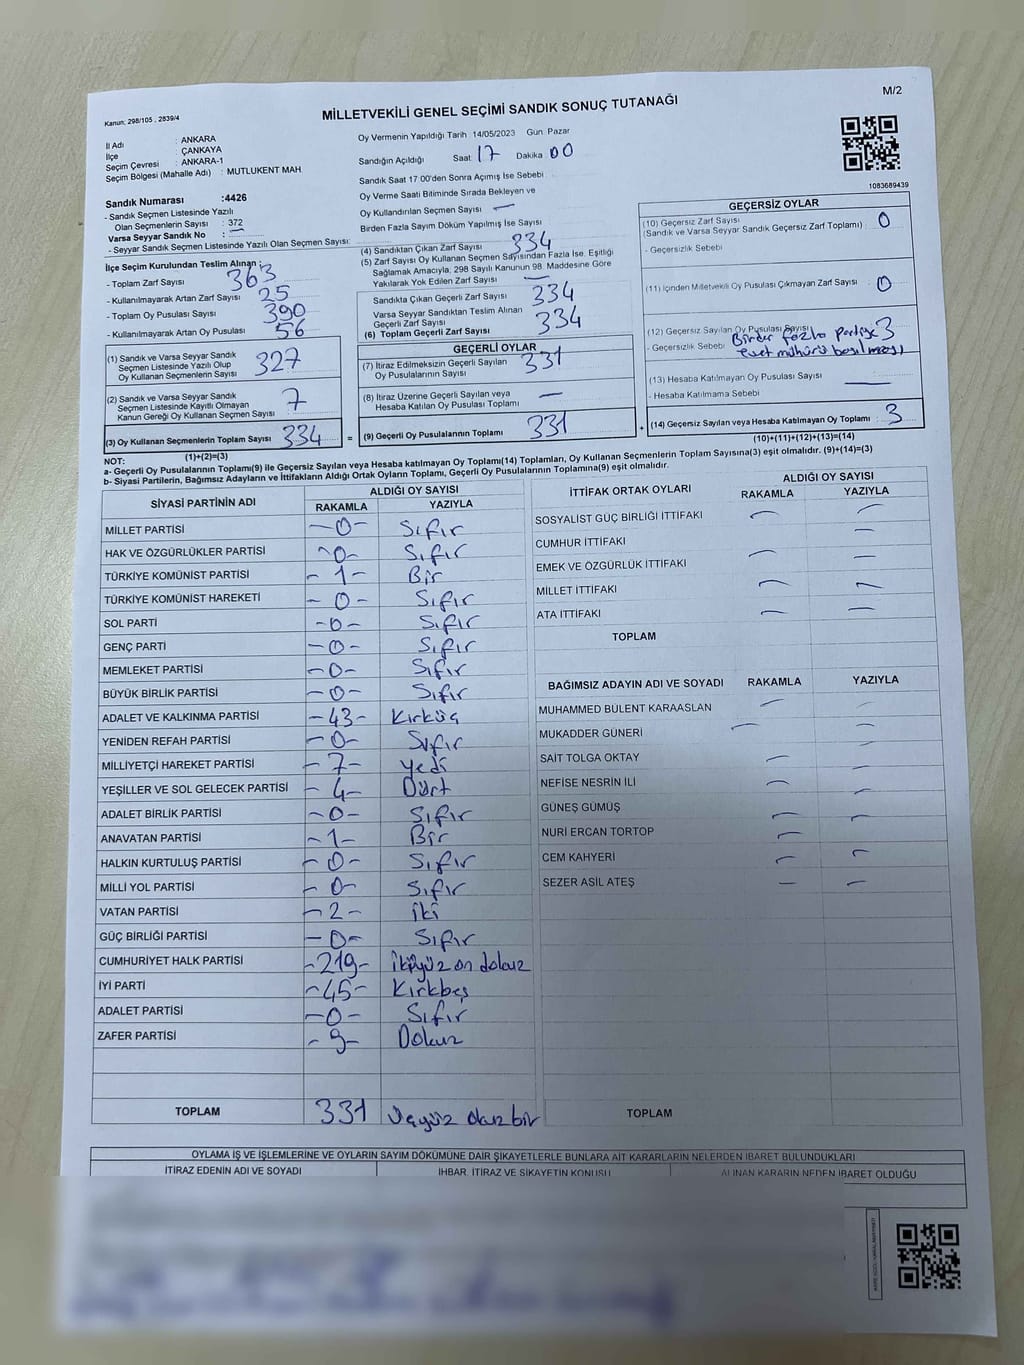 M/2
Kanun: 298/105 , 2839/4
MİLLETVEKİLİ GENEL SEÇİMİ SANDIK SONUÇ TUTANAĞI
İl Adı : ANKARA
İlçe : ÇANKAYA
Seçim Çevresi : ANKARA-1
Seçim Bölgesi (Mahalle Adı) : MUTLUKENT MAH
Sandık Numarası :4426
- Sandık Seçmen Listesinde Yazılı
Olan Seçmenlerin Sayısı : 372
Varsa Seyyar Sandık No : —
- Seyyar Sandık Seçmen Listesinde Yazılı Olan Seçmen Sayısı:
İlçe Seçim Kurulundan Teslim Alınan :
- Toplam Zarf Sayısı 363
- Kullanılmayarak Artan Zarf Sayısı 25
- Toplam Oy Pusulası Sayısı 390
- Kullanılmayarak Artan Oy Pusulası 56
(1) Sandık ve Varsa Seyyar Sandık
Seçmen Listesinde Yazılı Olup
Oy Kullanan Seçmenlerin Sayısı 327
(2) Sandık ve Varsa Seyyar Sandık
Seçmen Listesinde Kayıtlı Olmayan
Kanun Gereği Oy Kullanan Seçmen Sayısı 7
(3) Oy Kullanan Seçmenlerin Toplam Sayısı 334 =
(1)+(2)=(3)
Oy Vermenin Yapıldığı Tarih 14/05/2023 Gün Pazar
Sandığın Açıldığı Saat 17 Dakika 00
Sandık Saat 17.00'den Sonra Açımış İse Sebebi
Oy Verme Saati Bitiminde Sırada Bekleyen ve
Oy Kullandırılan Seçmen Sayısı —
Birden Fazla Sayım Döküm Yapılmış İse Sayısı
(4) Sandıktan Çıkan Zarf Sayısı 334
(5) Zarf Sayısı Oy Kullanan Seçmen Sayısından Fazla İse, Eşitliği
Sağlamak Amacıyla; 298 Sayılı Kanunun 98. Maddesine Göre
Yakılarak Yok Edilen Zarf Sayısı —
Sandıkta Çıkan Geçerli Zarf Sayısı 334
Varsa Seyyar Sandıktan Teslim Alınan
Geçerli Zarf Sayısı
(6) Toplam Geçerli Zarf Sayısı 334
GEÇERLİ OYLAR
(7) İtiraz Edilmeksizin Geçerli Sayılan
Oy Pusulalarının Sayısı 331
(8) İtiraz Üzerine Geçerli Sayılan veya
Hesaba Katılan Oy Pusulası Toplamı —
(9) Geçerli Oy Pusulalarının Toplamı 331 +
1083689439
GEÇERSİZ OYLAR
(10) Geçersiz Zarf Sayısı 0
(Sandık ve Varsa Seyyar Sandık Geçersiz Zarf Toplamı)
- Geçersizlik Sebebi
(11) İçinden Milletvekili Oy Pusulası Çıkmayan Zarf Sayısı : 0
(12) Geçersiz Sayılan Oy Pusulası Sayısı 3
- Geçersizlik Sebebi Birden fazla partiye
evet mühürü basılması
(13) Hesaba Katılmayan Oy Pusulası Sayısı : —
- Hesaba Katılmama Sebebi
(14) Geçersiz Sayılan veya Hesaba Katılmayan Oy Toplamı : 3
(10)+(11)+(12)+(13)=(14)
NOT:
a- Geçerli Oy Pusulalarının Toplamı(9) ile Geçersiz Sayılan veya Hesaba katılmayan Oy Toplamı(14) Toplamları, Oy Kullanan Seçmenlerin Toplam Sayısına(3) eşit olmalıdır. (9)+(14)=(3)
b- Siyasi Partilerin, Bağımsız Adayların ve İttifakların Aldığı Ortak Oyların Toplamı, Geçerli Oy Pusulalarının Toplamına(9) eşit olmalıdır.
SİYASİ PARTİNİN ADI ALDIĞI OY SAYISI
RAKAMLA YAZIYLA
MİLLET PARTİSİ -0- Sıfır
HAK VE ÖZGÜRLÜKLER PARTİSİ -0- Sıfır
TÜRKİYE KOMÜNİST PARTİSİ -1- Bir
TÜRKİYE KOMÜNİST HAREKETİ -0- Sıfır
SOL PARTİ -0- Sıfır
GENÇ PARTİ -0- Sıfır
MEMLEKET PARTİSİ -0- Sıfır
BÜYÜK BİRLİK PARTİSİ -0- Sıfır
ADALET VE KALKINMA PARTİSİ -43- Kırküç
YENİDEN REFAH PARTİSİ -0- Sıfır
MİLLİYETÇİ HAREKET PARTİSİ -7- yedi
YEŞİLLER VE SOL GELECEK PARTİSİ -4- Dört
ADALET BİRLİK PARTİSİ -0- Sıfır
ANAVATAN PARTİSİ -1- Bir
HALKIN KURTULUŞ PARTİSİ -0- Sıfır
MİLLİ YOL PARTİSİ -0- Sıfır
VATAN PARTİSİ -2- iki
GÜÇ BİRLİĞİ PARTİSİ -0- Sıfır
CUMHURİYET HALK PARTİSİ -219- ikiyüz on dokuz
İYİ PARTİ -45- Kırkbeş
ADALET PARTİSİ -0- Sıfır
ZAFER PARTİSİ -9- Dokuz
TOPLAM 331 üçyüz otuz bir
İTTİFAK ORTAK OYLARI ALDIĞI OY SAYISI
RAKAMLA YAZIYLA
SOSYALİST GÜÇ BİRLİĞİ İTTİFAKI — —
CUMHUR İTTİFAKI —
EMEK VE ÖZGÜRLÜK İTTİFAKI — —
MİLLET İTTİFAKI — —
ATA İTTİFAKI — —
TOPLAM
BAĞIMSIZ ADAYIN ADI VE SOYADI RAKAMLA YAZIYLA
MUHAMMED BÜLENT KARAASLAN — —
MUKADDER GÜNERİ — —
SAİT TOLGA OKTAY — —
NEFİSE NESRİN İLİ — —
GÜNEŞ GÜMÜŞ — —
NURİ ERCAN TORTOP —
CEM KAHYERİ — —
SEZER ASİL ATEŞ — —
TOPLAM
OYLAMA İŞ VE İŞLEMLERİNE VE OYLARIN SAYIM DÖKÜMÜNE DAİR ŞİKAYETLERLE BUNLARA AİT KARARLARIN NELERDEN İBARET BULUNDUKLARI
İTİRAZ EDENİN ADI VE SOYADI İHBAR, İTİRAZ VE ŞİKAYETİN KONUSU ALINAN KARARIN NEDEN İBARET OLDUĞU